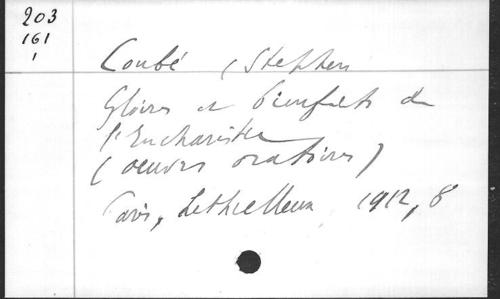 203
161
1
Coubé (Stephen
Gloires et bienfaits de
l'Eucharistie
(oeuvres oratoires)
Paris, Lethielleux 1912, 8